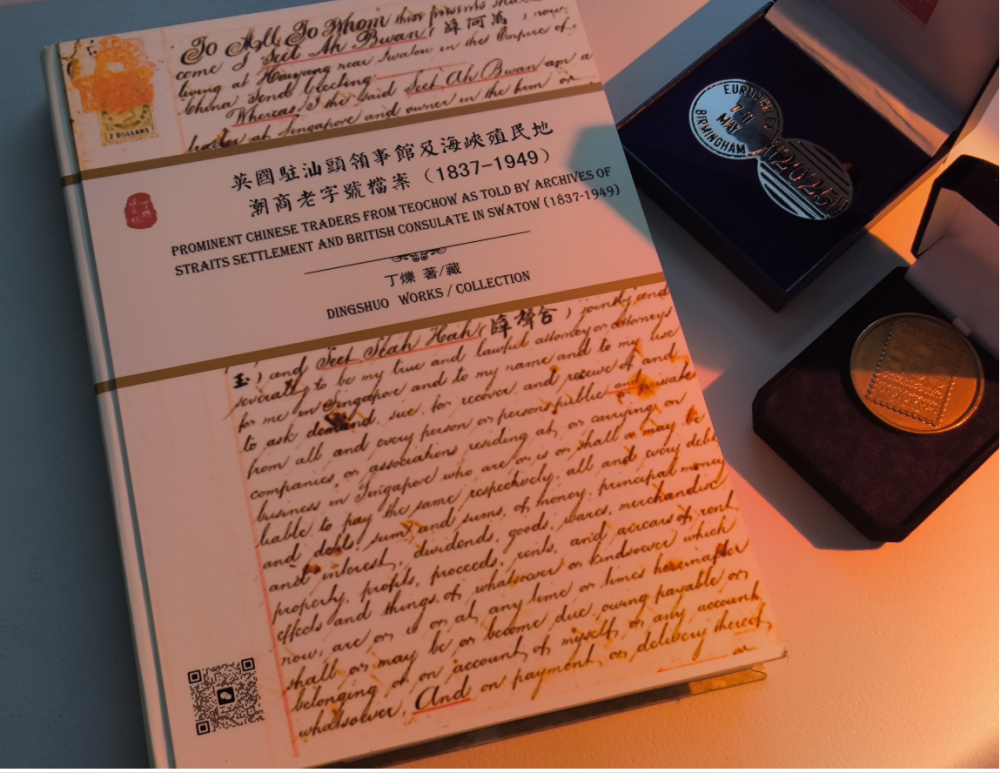 To All To Whom these presents shall
come I Seet Ah Bwan (薛阿為) now
living at Haiyang near Swatow in the Empire of
China Send Greeting
Whereas I the said Seet Ah Bwan am a
trader at Singapore and owner in the firm or
2 DOLLARS
英國駐汕頭領事館及海峽殖民地
潮商老字號檔案(1837-1949)
PROMINENT CHINESE TRADERS FROM TEOCHOW AS TOLD BY ARCHIVES OF
STRAITS SETTLEMENT AND BRITISH CONSULATE IN SWATOW (1837-1949)
丁爍 著/藏
DINGSHUO WORKS / COLLECTION
and Seet Seah Hah (薛謝合) jointly and
severally to be my true and lawful attorney or attorneys
for me in Singapore and to my name and to my use
to ask demand, sue for recover and receive of and
from all and every person or persons public and
companies, or associations residing at, or carrying on
business in Singapore who are or is or shall or may be
liable to pay the same respectively, all and every debt
and debts, sum and sums of money, principal money
and interest, dividends, goods, wares, merchandise
property, profits, proceeds, rents, and arrears of rent
effects and things of whatsoever or kindsoever which
now, are or is or at any time or times hereinafter
shall or may be or become due, owing payable or
belonging to or on account of myself or any account
whatsoever, And on payment or delivery thereof
or
EUROPHILEX
7-11
MAY
BIRMINGHAM
2025